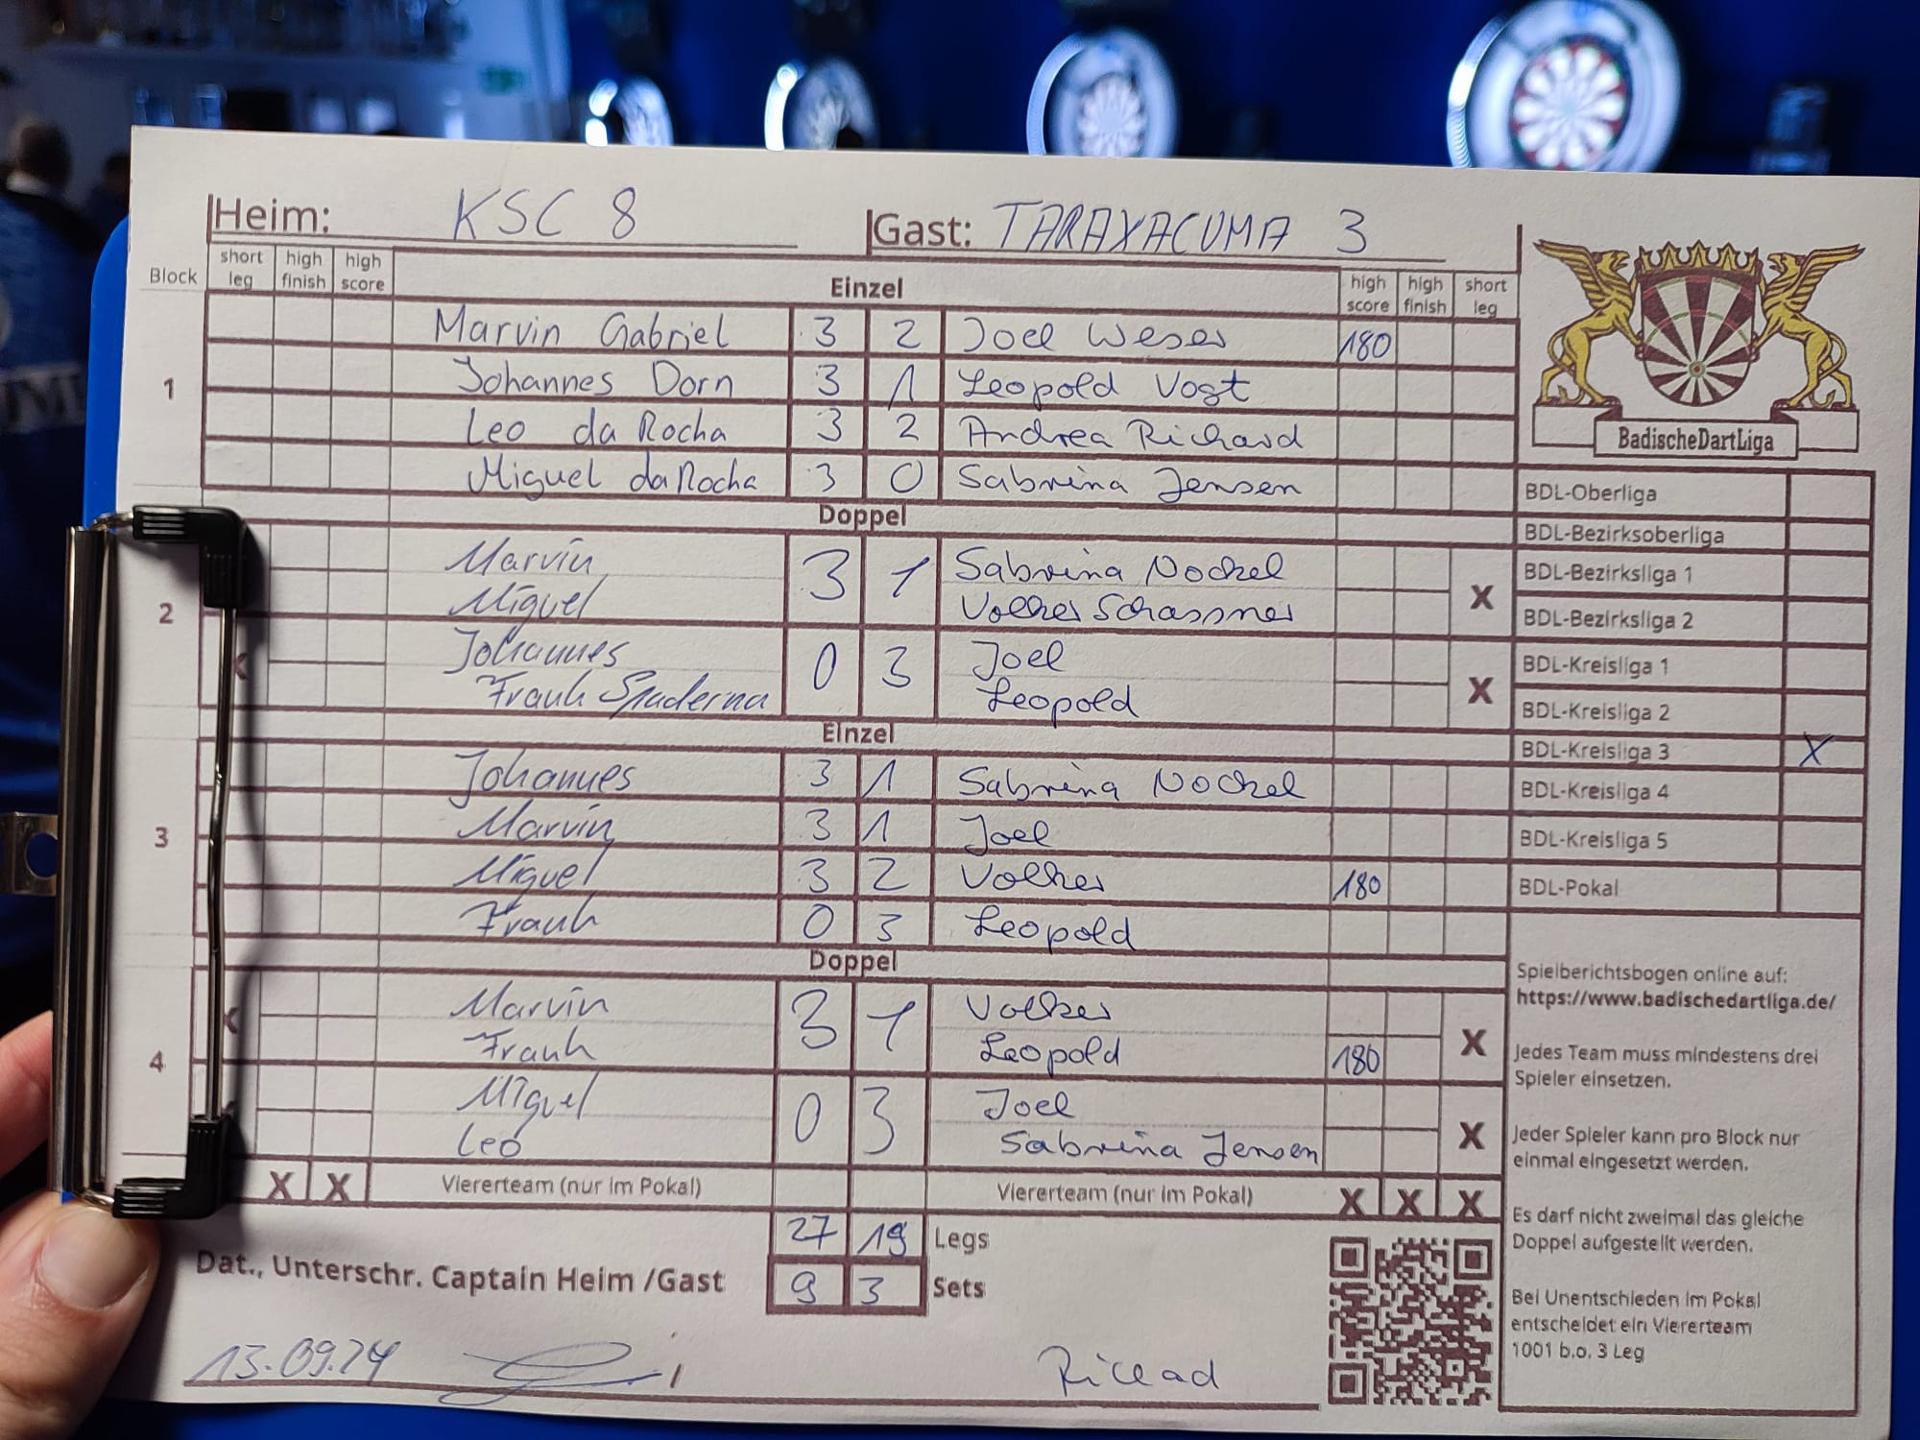 Heim: KSC 8 Gast: TARAXACUMA 3
Block short leg high finish high score Einzel high score high finish short leg
1
Marvin Gabriel 3 2 Joel Weser 180
Johannes Dorn 3 1 Leopold Vogt
Leo da Rocha 3 2 Andrea Richard
Miguel da Rocha 3 0 Sabrina Jensen
Doppel
2
Marvin 3 1 Sabrina Nockel X
Miguel Volker Schassner
Johannes 0 3 Joel X
Frank Spaderna Leopold
Einzel
3
Johannes 3 1 Sabrina Nockel
Marvin 3 1 Joel
Miguel 3 2 Volker 180
Frank 0 3 Leopold
Doppel
4
Marvin 3 1 Volker X
Frank Leopold 180
Miguel 0 3 Joel X
Leo Sabrina Jensen
X X Viererteam (nur im Pokal) Viererteam (nur im Pokal) X X X
27 19 Legs
9 3 Sets
Dat., Unterschr. Captain Heim /Gast
13.09.24
BadischeDartLiga
BDL-Oberliga
BDL-Bezirksoberliga
BDL-Bezirksliga 1
BDL-Bezirksliga 2
BDL-Kreisliga 1
BDL-Kreisliga 2
BDL-Kreisliga 3 X
BDL-Kreisliga 4
BDL-Kreisliga 5
BDL-Pokal
Spielberichtsbogen online auf:
https://www.badischedartliga.de/
Jedes Team muss mindestens drei
Spieler einsetzen.
Jeder Spieler kann pro Block nur
einmal eingesetzt werden.
Es darf nicht zweimal das gleiche
Doppel aufgestellt werden.
Bei Unentschieden im Pokal
entscheidet ein Viererteam
1001 b.o. 3 Leg